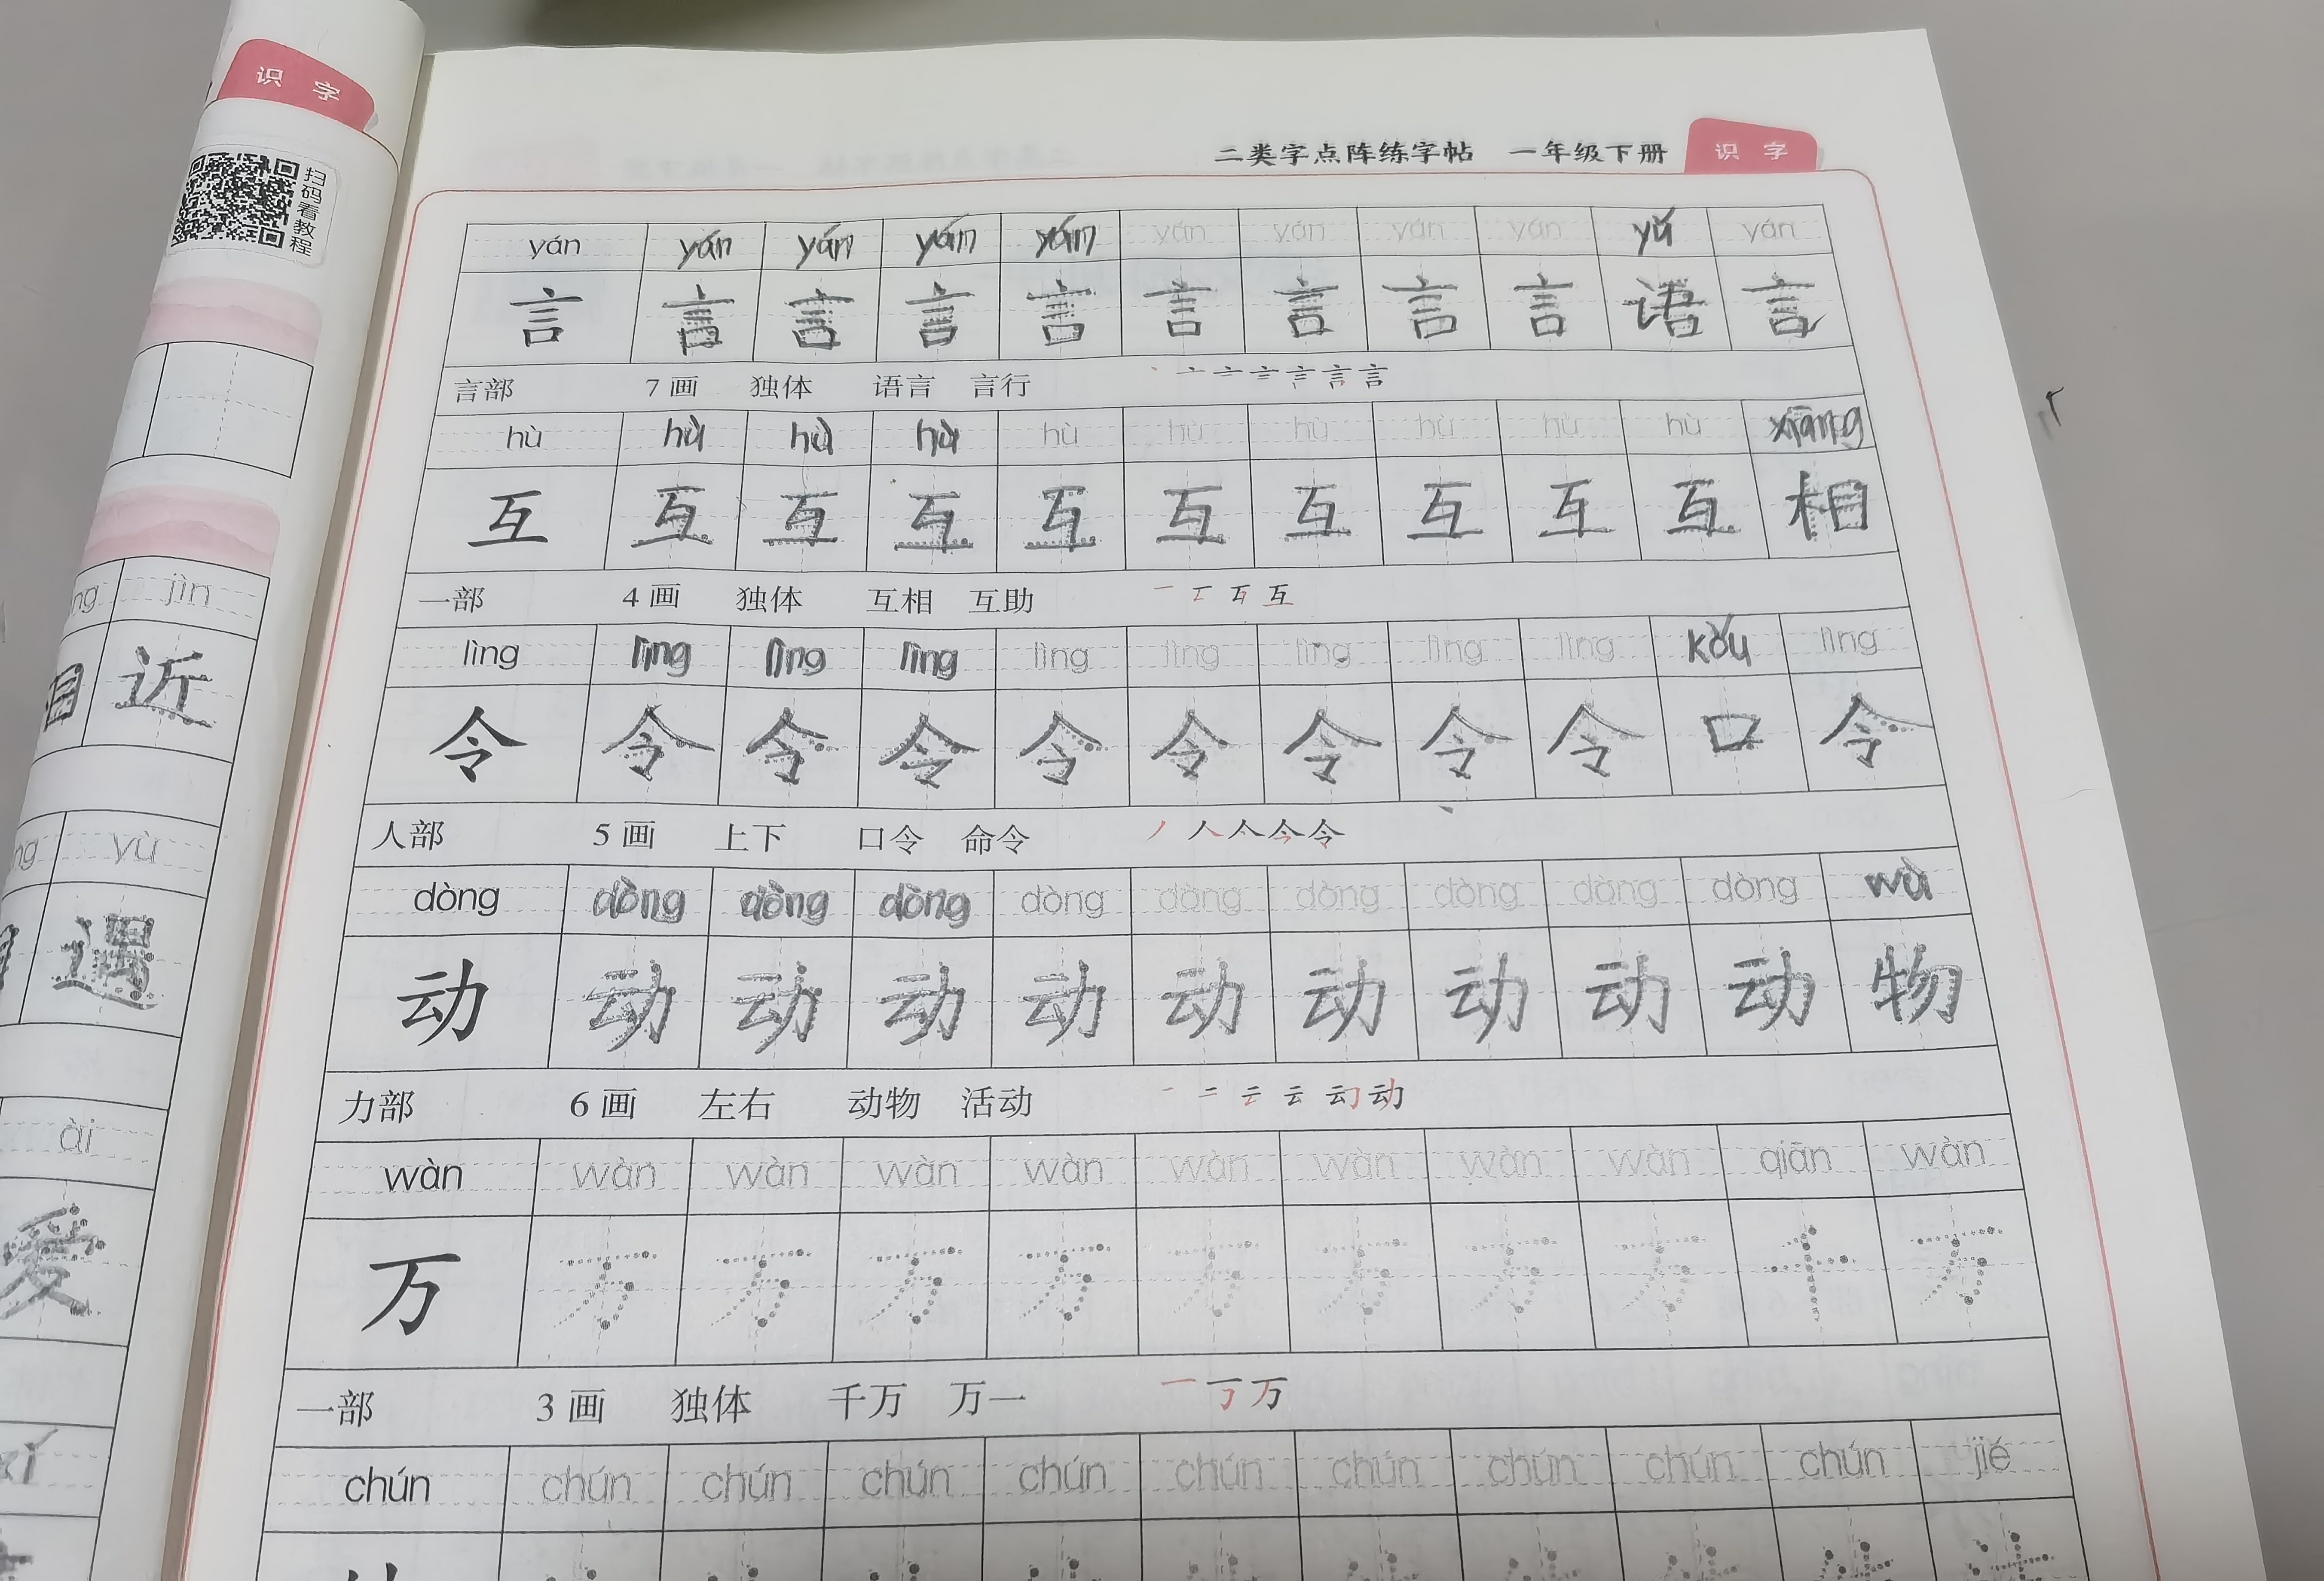 识 字
扫码看教程
jìn
近
yù
遇
ài
爱
二类字点阵练字帖 一年级下册 识 字
yán yán yán yán yán yán yán yán yán yǔ yán
言 言 言 言 言 言 言 言 言 语 言
言部 7画 独体 语言 言行
hù hù hù hù hù hù hù hù hù hù xiāng
互 互 互 互 互 互 互 互 互 互 相
一部 4画 独体 互相 互助
lìng lìng lìng lìng lìng lìng lìng lìng lìng kǒu lìng
令 令 令 令 令 令 令 令 令 口 令
人部 5画 上下 口令 命令
dòng dòng dòng dòng dòng dòng dòng dòng dòng dòng wù
动 动 动 动 动 动 动 动 动 动 物
力部 6画 左右 动物 活动
wàn wàn wàn wàn wàn wàn wàn wàn wàn qiān wàn
万 万 万 万 万 万 万 万 万 千 万
一部 3画 独体 千万 万一
chún chún chún chún chún chún chún chún chún chún jié